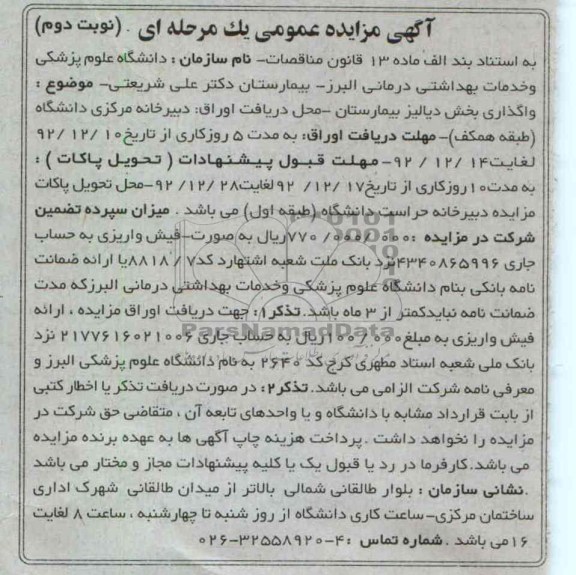 آگهی مزایده عمومی یك مرحله ای . (نوبت دوم)
به استناد بند الف ماده ۱۳ قانون مناقصات- نام سازمان : دانشگاه علوم پزشکی
وخدمات بهداشتی درمانی البرز- بیمارستان دکتر علی شریعتی- موضوع :
واگذاری بخش دیالیز بیمارستان -محل دریافت اوراق: دبیرخانه مرکزی دانشگاه
(طبقه همکف)- مهلت دریافت اوراق: به مدت ۵ روزکاری از تاریخ۱۰/ ۱۲/ ۹۲
لغایت۱۴ /۱۲ / ۹۲- مهلت قبول پیشنهادات ( تحویل پاکات ) :
به مدت۱۰روزکاری از تاریخ۱۷ /۱۲/ ۹۲ لغایت۲۸ /۱۲/ ۹۲-محل تحویل پاکات
مزایده دبیرخانه حراست دانشگاه (طبقه اول) می باشد . میزان سپرده تضمین
شرکت در مزایده :۷۷۰/۰۰۰/۰۰۰ریال به صورت-فیش واریزی به حساب
جاری ۴۳۴۰۸۶۵۹۹۶نزد بانک ملت شعبه اشتهارد کد۷ /۸۸۱۸یا ارائه ضمانت
نامه بانکی بنام دانشگاه علوم پزشکی وخدمات بهداشتی درمانی البرزکه مدت
ضمانت نامه نبایدکمتر از ۳ ماه باشد. تذکر۱: جهت دریافت اوراق مزایده ، ارائه
فیش واریزی به مبلغ۱۰۰/۰۰۰ریال به حساب جاری ۲۱۷۷۶۱۶۰۲۱۰۰۶ نزد
بانک ملی شعبه استاد مطهری کرج کد ۲۶۴۰ به نام دانشگاه علوم پزشکی البرز و
معرفی نامه شرکت الزامی می باشد. تذکر۲: در صورت دریافت تذکر یا اخطار کتبی
از بابت قرارداد مشابه با دانشگاه و یا واحدهای تابعه آن ، متقاضی حق شرکت در
مزایده را نخواهد داشت .پرداخت هزینه چاپ آگهی ها به عهده برنده مزایده
می باشد.کارفرما در رد یا قبول یک یا کلیه پیشنهادات مجاز و مختار می باشد
.نشانی سازمان : بلوار طالقانی شمالی بالاتر از میدان طالقانی شهرک اداری
ساختمان مرکزی-ساعت کاری دانشگاه از روز شنبه تا چهارشنبه ، ساعت ۸ لغایت
۱۶می باشد . شماره تماس :۴-۳۲۵۵۸۹۲۰-۰۲۶
ParsNamadData